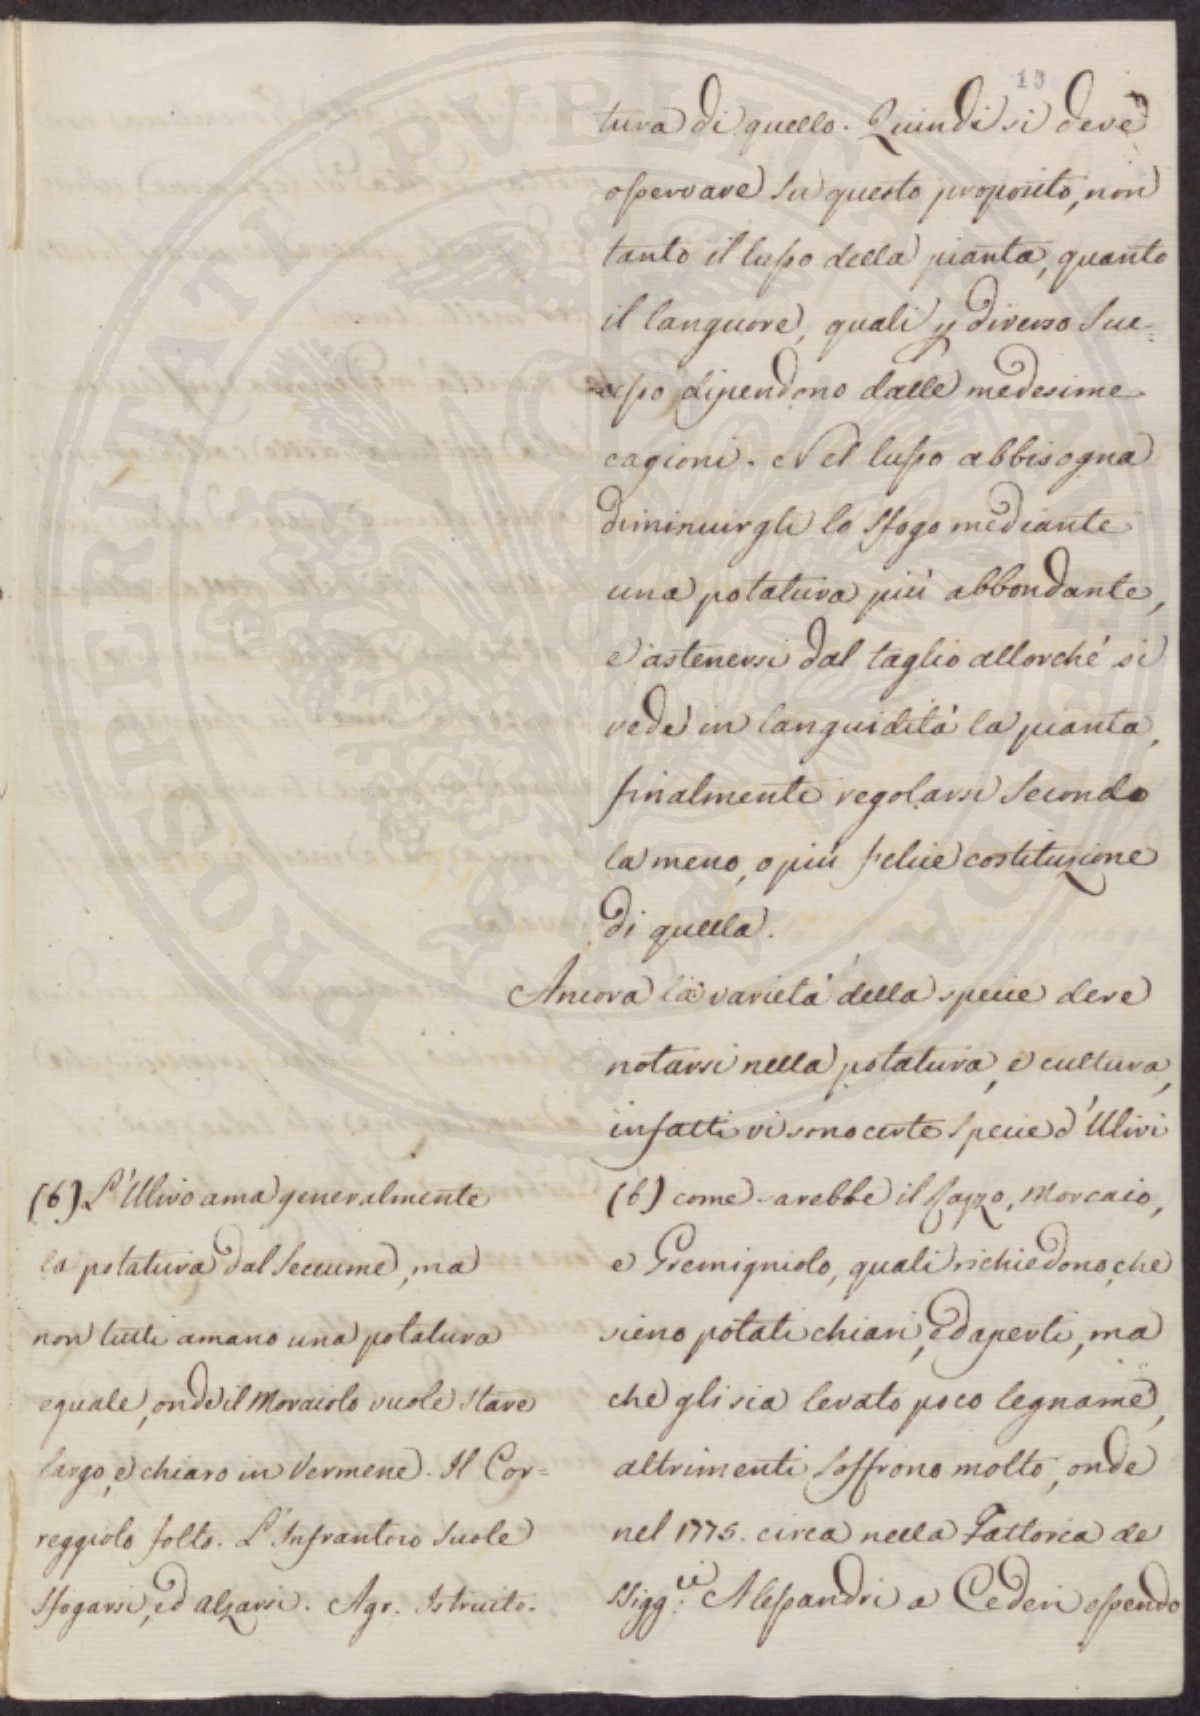 13
tura di quello. Quindi si deve
osservare su questo proposito, non
tanto il lusso della pianta, quanto
il languore, quali p diverso suc=
cesso dipendono dalle medesime
cagioni. Nel lusso abbisogna
diminuirgli lo sfogo mediante
una potatura più abbondante,
e astenersi dal taglio allorché si
vede in languidità la pianta,
finalmente regolarsi secondo
la meno, o più felice costituzione
di quella.
Ancora la varietà della specie deve
notarsi nella potatura, e cultura,
infatti vi sono certe specie d'Ulivi
(6) come sarebbe il Razzo, Morcaio,
e Gremigniolo, quali richiedono, che
sieno potati chiari, ed aperti, ma
che gli sia levato poco legname,
altrimenti soffrono molto, onde
nel 1775. circa nella Fattoria de
Sigg.ri Alessandri a Cederi essendo
(6) L'Ulivo ama generalmente
la potatura dal Seccume, ma
non tutti amano una potatura
eguale, onde il Moraiolo vuole stare
largo, e chiaro in Vermene. Il Cor=
reggiolo folto. L'Infrantoio suole
sfogarsi, ed alzarsi. Agr. Istruito.
PROSPERITATI PVBLICAE